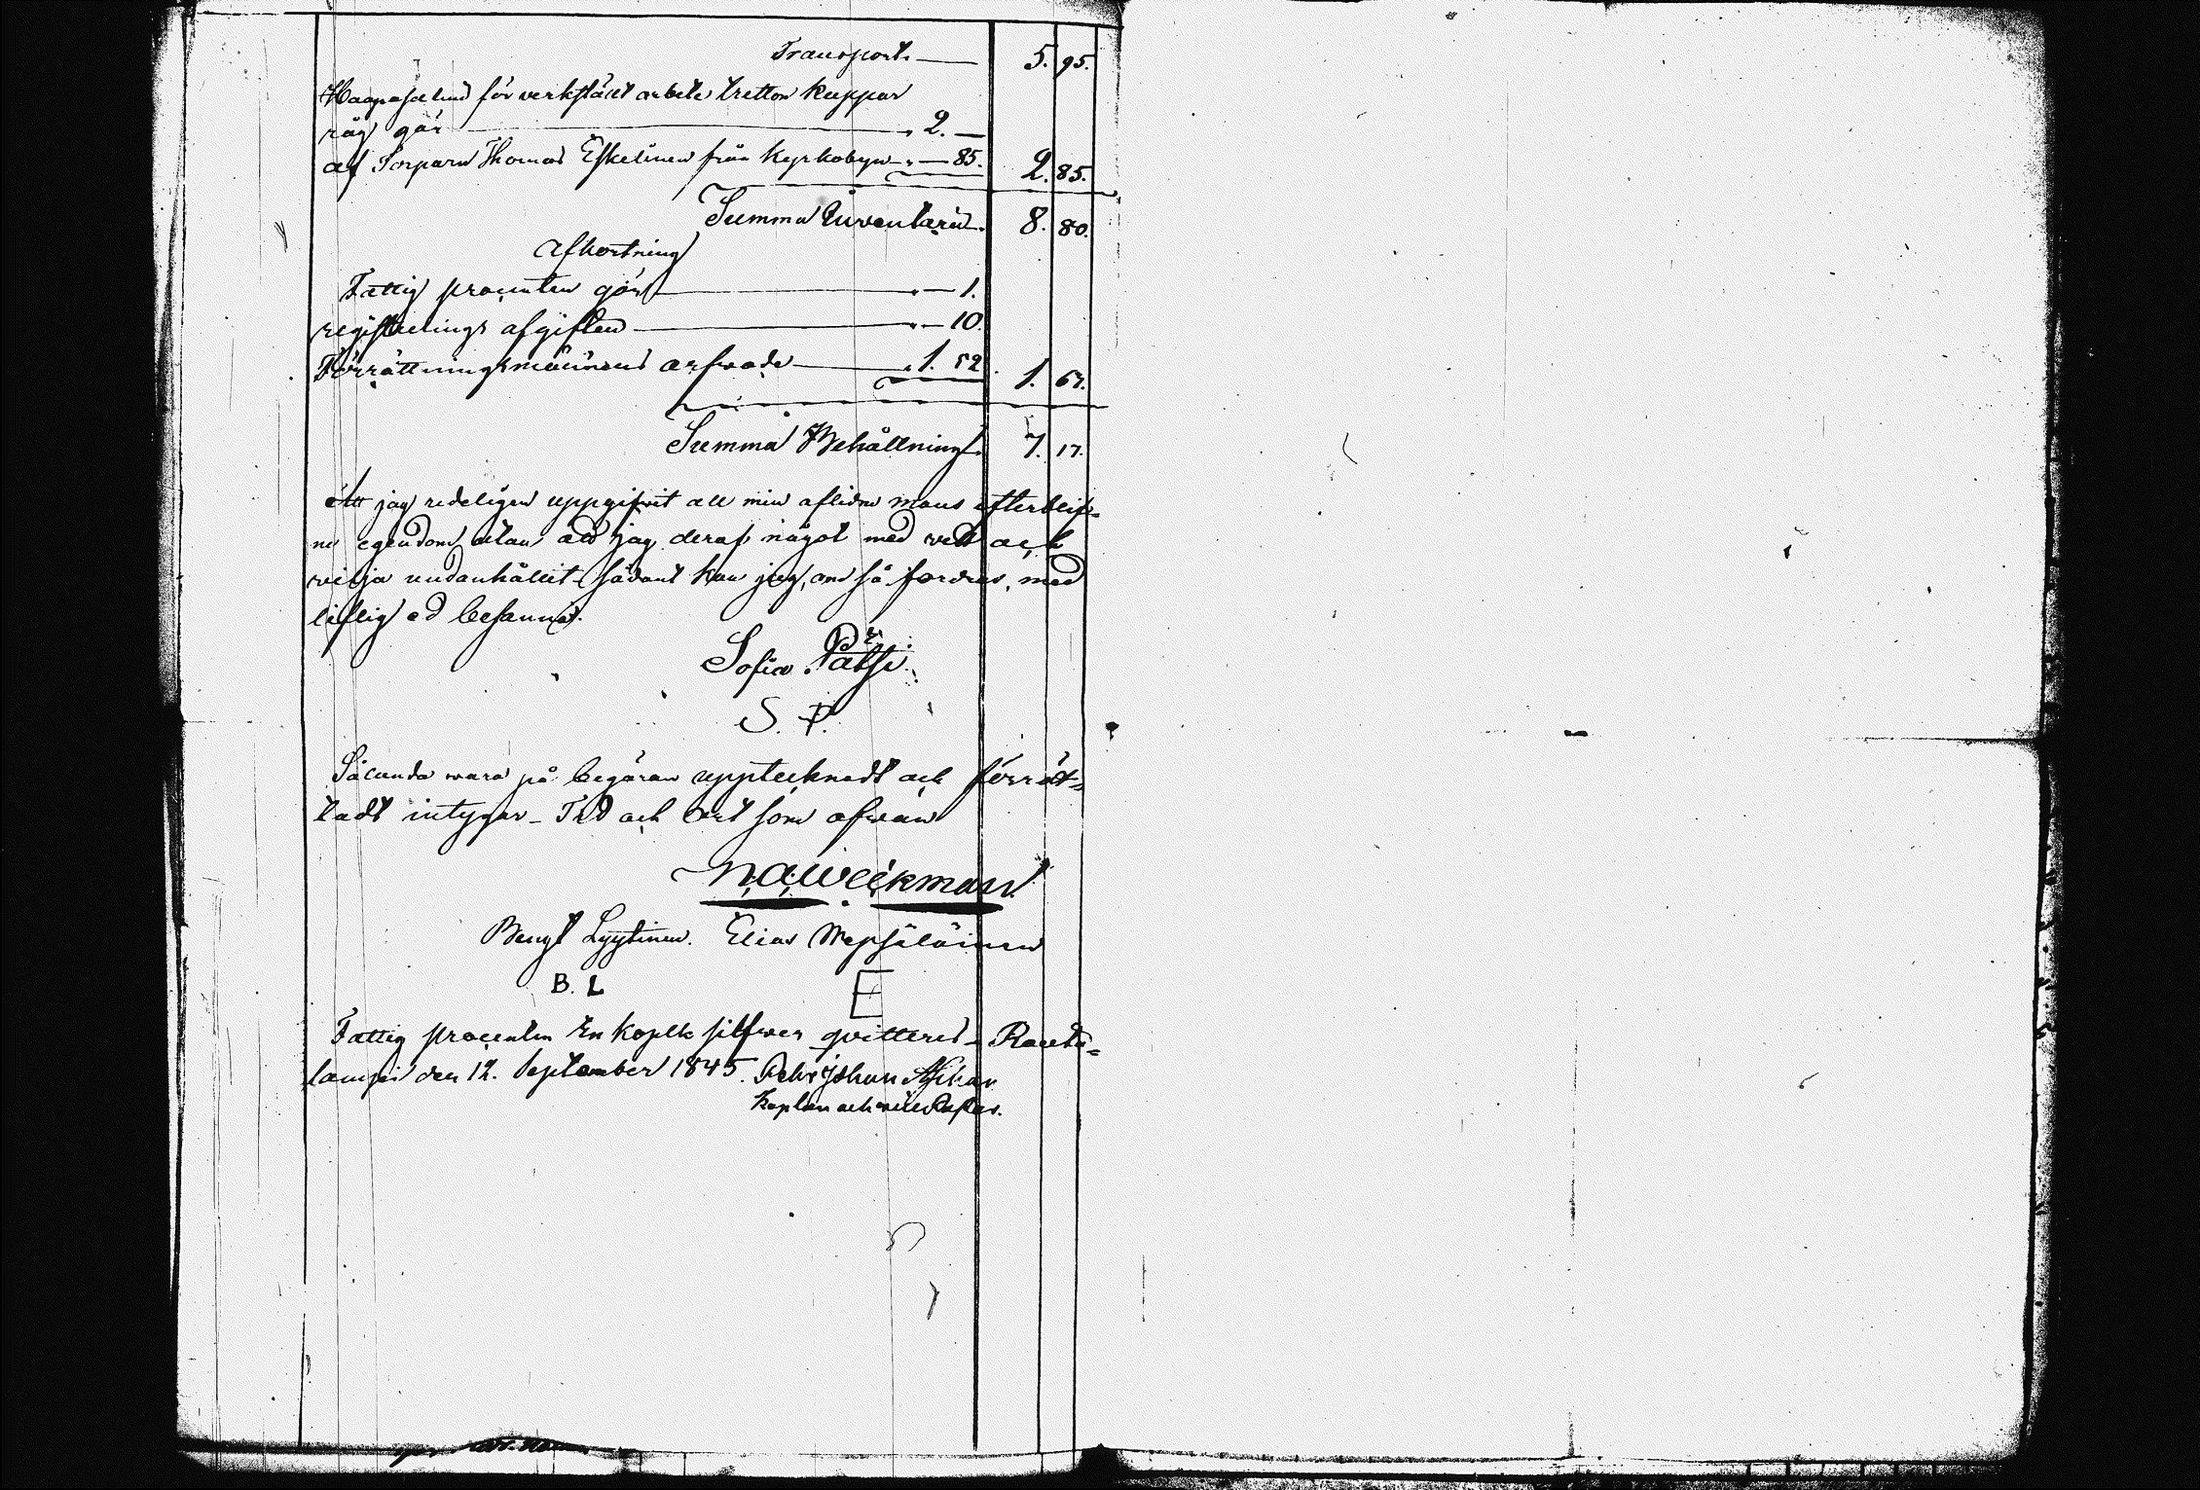 Transport — 5. 95.
för verkstäldt arbete tretton kappar
råg gör — 2. —
af Torparn Thomas Eskelinen från Kyrkobyn — 85. 2. 85.
Summa Inventarii. 8. 80.
Afkortning
Fattig procenten gör — 1.
registrerings afgiften — 10.
Förrättningsmännens arfwode — 1. 52. 1. 63.
Summa Behållning 7. 17.
Att jag redeligen uppgifwit all min aflidne mans efterblif-
ne egendom utan att jag deraf något med vett och
vilja undanhållit sådant kan jag, om så fordras, med
liflig ed besanna.
Sofia Pätsi.
S. P.
Sålunda wara på begäran upptecknadt och förrät-
tadt intygar – Tid och Ort som ofwan
N. A. Weckman
Bengt Lyytinen. Elias Wepsäläinen
B. L E
Fattig procenten En kopek silfwer qvitteras – Rauta-
lampi den 12. September 1845. Johan
Kaplan och